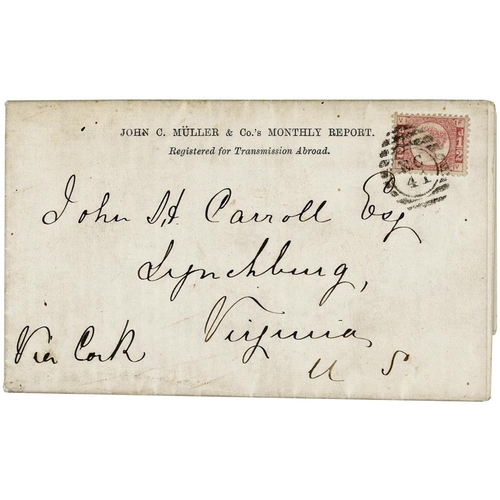 JOHN C. MÜLLER & Co.'s MONTHLY REPORT.
Registered for Transmission Abroad.
EC
41
John H. Carroll Esq
Lynchburg,
Virginia
Via Cork
U S